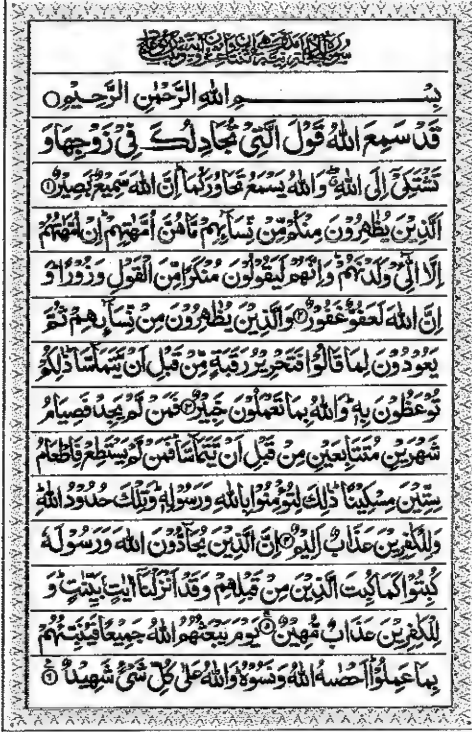 بِسْمِ اللهِ الرَّحْمٰنِ الرَّحِيْمِ
قَدْ سَمِعَ اللهُ قَوْلَ الَّتِيْ تُجَادِلُكَ فِيْ زَوْجِهَا وَ
تَشْتَكِيْ اِلَى اللهِ ۖ وَاللهُ يَسْمَعُ تَحَاوُرَكُمَا ؕ اِنَّ اللهَ سَمِيْعٌۢ بَصِيْرٌ ۝۱
اَلَّذِيْنَ يُظٰهِرُوْنَ مِنْكُمْ مِّنْ نِّسَآىِٕهِمْ مَّا هُنَّ اُمَّهٰتِهِمْ ؕ اِنْ اُمَّهٰتُهُمْ
اِلَّا الّٰٓـِٔيْ وَلَدْنَهُمْ ؕ وَاِنَّهُمْ لَيَقُوْلُوْنَ مُنْكَرًا مِّنَ الْقَوْلِ وَزُوْرًا ؕ وَ
اِنَّ اللهَ لَعَفُوٌّ غَفُوْرٌ ۝۲ وَالَّذِيْنَ يُظٰهِرُوْنَ مِنْ نِّسَآىِٕهِمْ ثُمَّ
يَعُوْدُوْنَ لِمَا قَالُوْا فَتَحْرِيْرُ رَقَبَةٍ مِّنْ قَبْلِ اَنْ يَّتَمَآسَّا ؕ ذٰلِكُمْ
تُوْعَظُوْنَ بِهٖ ؕ وَاللهُ بِمَا تَعْمَلُوْنَ خَبِيْرٌ ۝۳ فَمَنْ لَّمْ يَجِدْ فَصِيَامُ
شَهْرَيْنِ مُتَتَابِعَيْنِ مِنْ قَبْلِ اَنْ يَّتَمَآسَّا ۚ فَمَنْ لَّمْ يَسْتَطِعْ فَاِطْعَامُ
سِتِّيْنَ مِسْكِيْنًا ؕ ذٰلِكَ لِتُؤْمِنُوْا بِاللهِ وَرَسُوْلِهٖ ؕ وَتِلْكَ حُدُوْدُ اللهِ ؕ
وَلِلْكٰفِرِيْنَ عَذَابٌ اَلِيْمٌ ۝۴ اِنَّ الَّذِيْنَ يُحَآدُّوْنَ اللهَ وَرَسُوْلَهٗ
كُبِتُوْا كَمَا كُبِتَ الَّذِيْنَ مِنْ قَبْلِهِمْ وَقَدْ اَنْزَلْنَآ اٰيٰتٍۢ بَيِّنٰتٍ ؕ وَ
لِلْكٰفِرِيْنَ عَذَابٌ مُّهِيْنٌ ۝۵ يَوْمَ يَبْعَثُهُمُ اللهُ جَمِيْعًا فَيُنَبِّئُهُمْ
بِمَا عَمِلُوْا ؕ اَحْصٰىهُ اللهُ وَنَسُوْهُ ؕ وَاللهُ عَلٰى كُلِّ شَيْءٍ شَهِيْدٌ ۝۶